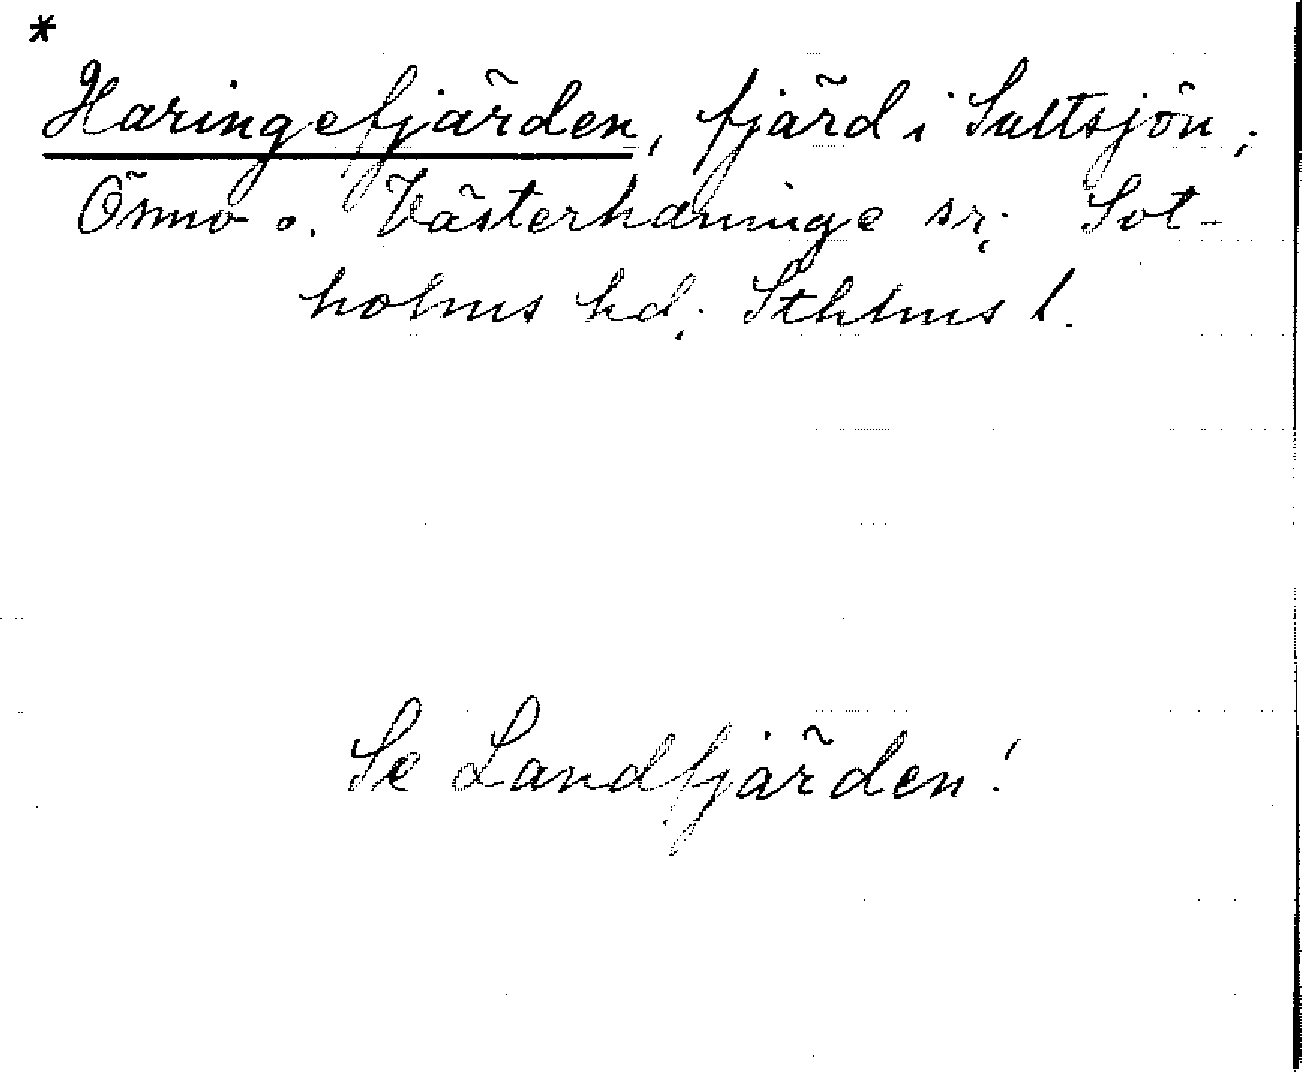 *
Häringefjärden, fjärd i Saltsjön;
Ösmo o. Västerhaninge sr; Sot-
holms hd; Sthlms l.
Se Landfjärden!